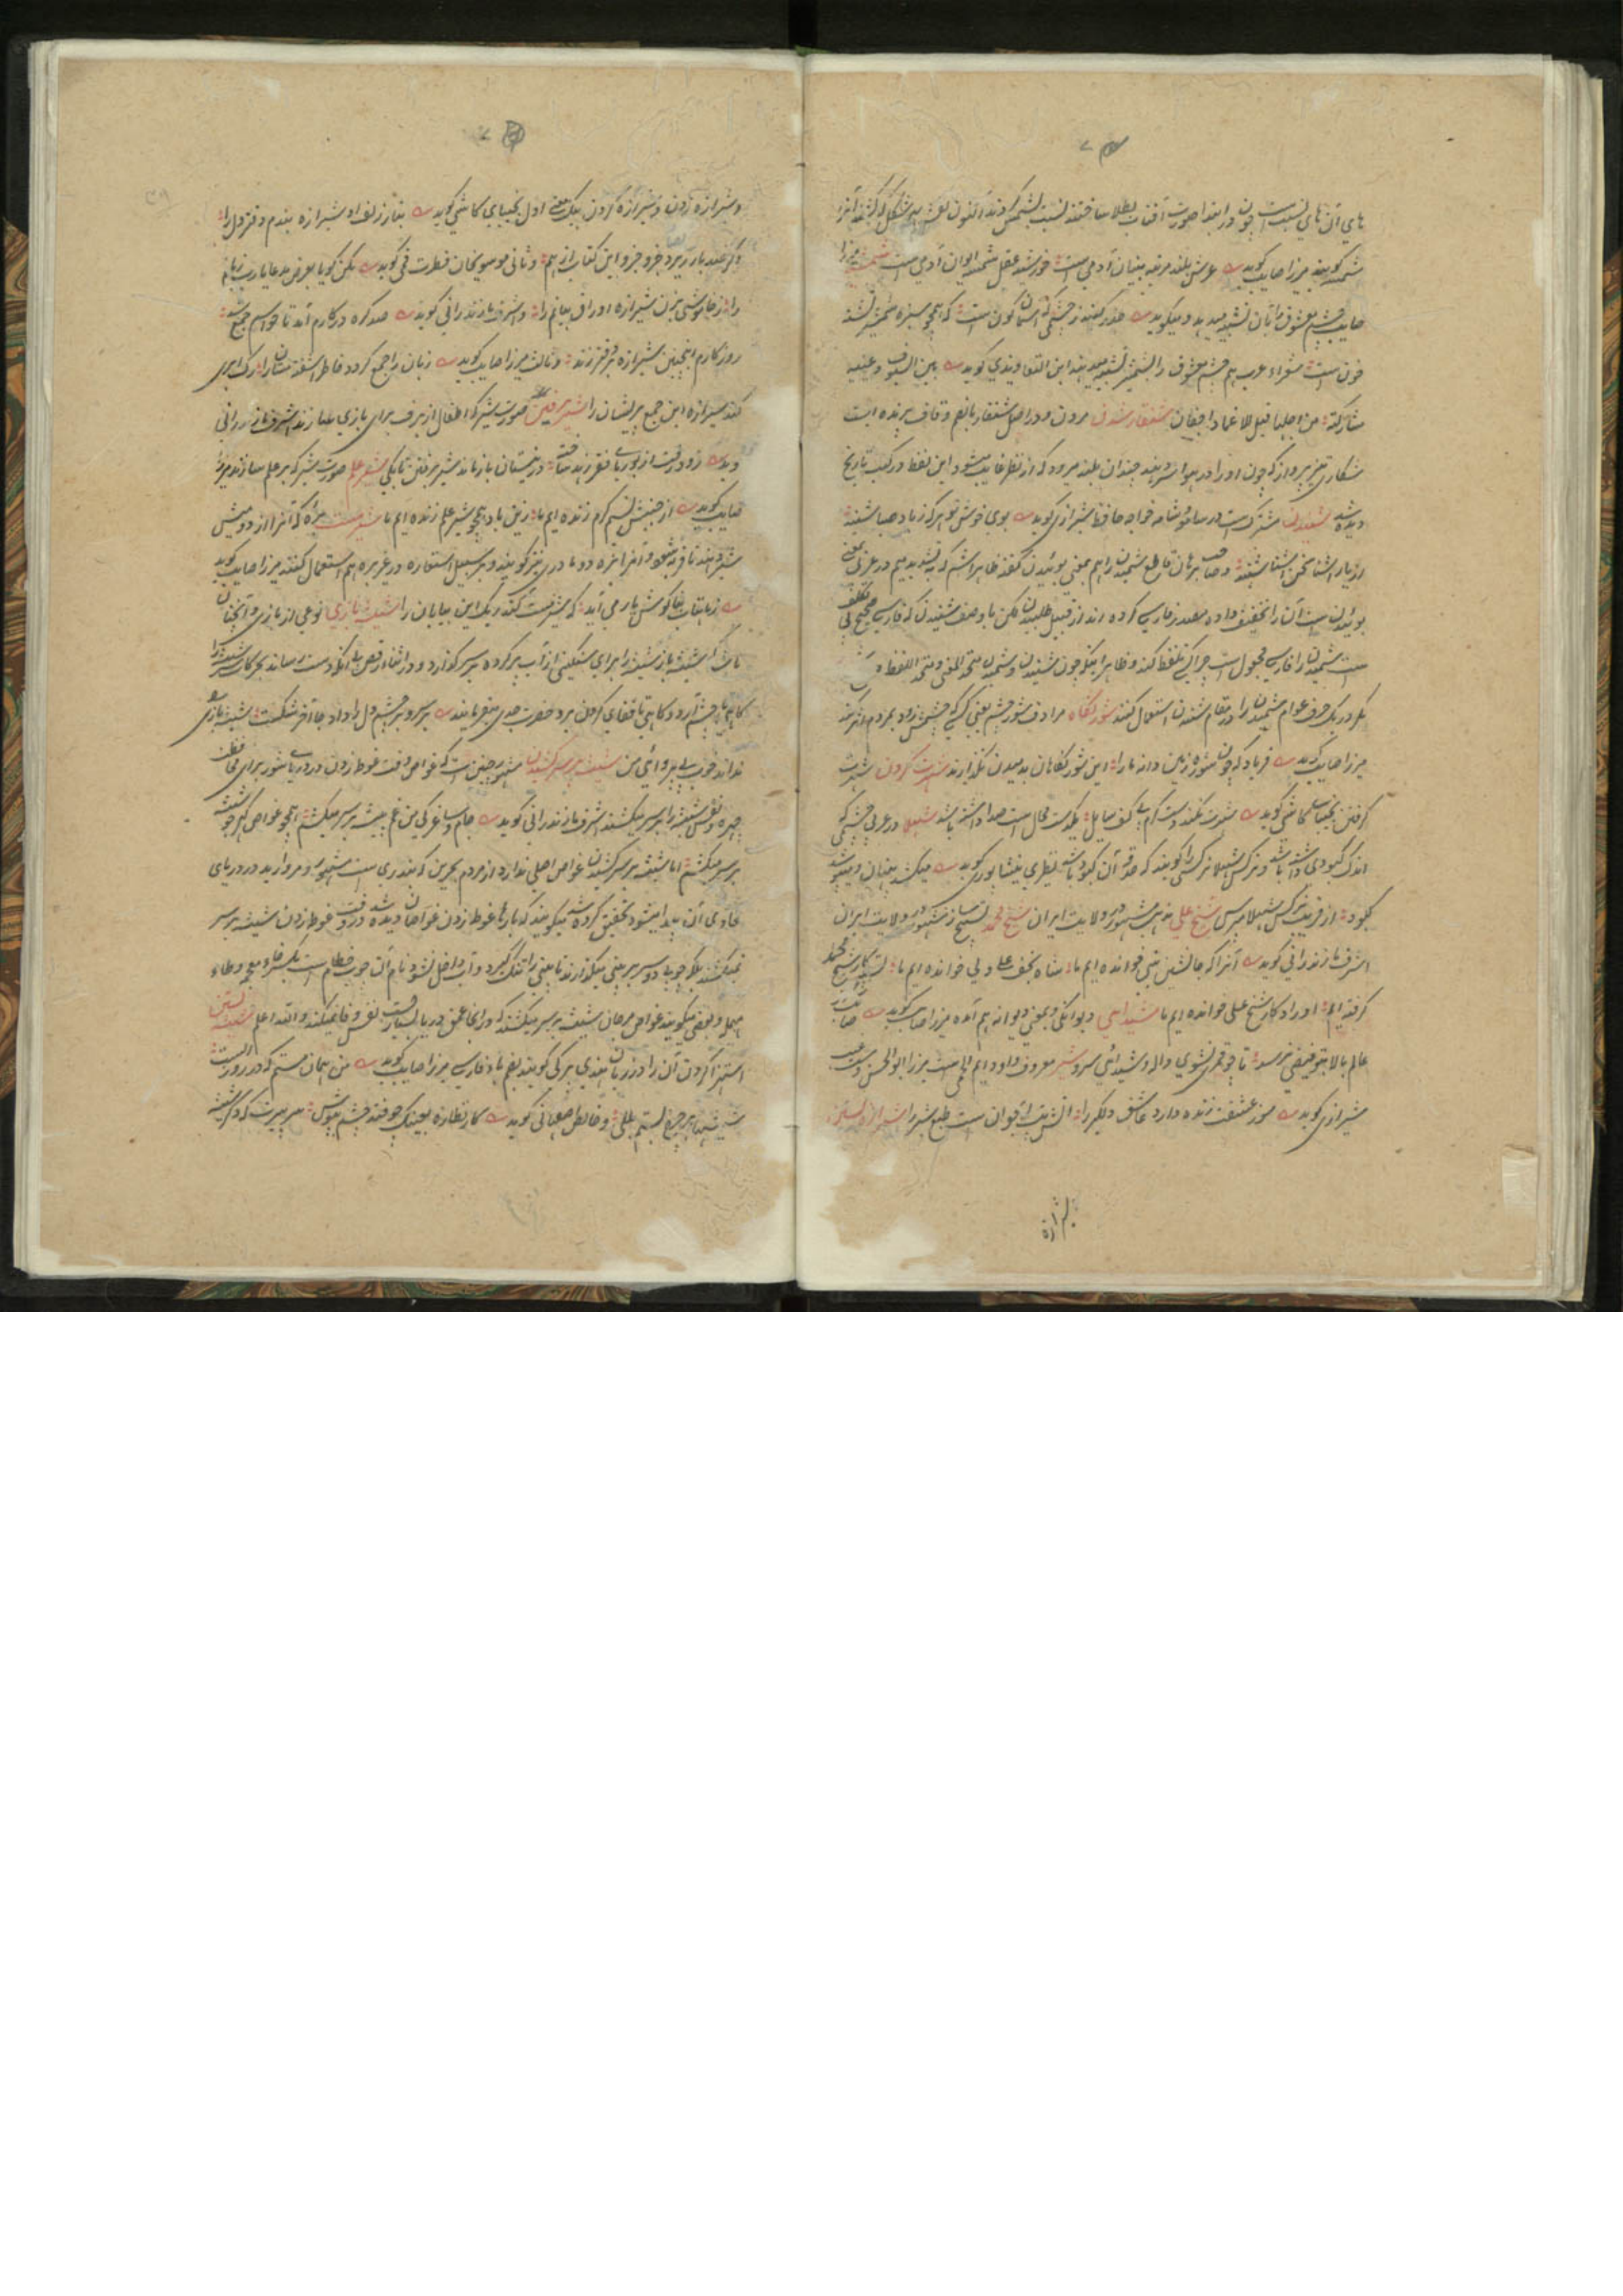 های آن های نسبت است چون در ابتدا صورت آفتاب بطلا ساختند نسبت بشمس کردند اکنون نقش بهر شکل که کشند آنرا
شمسه گویند میرزا صایب گوید عرش بلند مرتبه بنیان آدمی است خورشید عقل شمسه ایوان آدمی است
صایب چشم معشوق را بآن تشبیه میدهد و میگوید حذر کنید ز چشمی که آسمان گون است که همچو سبزه شمشیر تشنه
خون است شعراء عرب هم چشم معشوق را بشمشیر تشبیه میدهند ابن التعاویذی گوید بین السیوف و عینیه
مشارکة من اجلها قیل للاغماد اجفان شنقار شدن مردن و در اصل شنقار بالضم و قاف پرنده است
شکاری تیز پرواز که چون او را در هوا سر دهند چندان بلند میرود که از نظر غایب میشود این لفظ در کتب تاریخ
دیده شد شنیدن مشترک است در سامعه و شامه خواجه حافظ شیرازی گوید بوی خوش تو هر که ز باد صبا شنید
از یار آشنا سخن آشنا شنید و صاحب برهان قاطع شمیدن را هم بمعنی بوئیدن گفته ظاهرا شم که بتشدید میم در عربی بمعنی
بوئیدن است آن را تخفیف داده مصدر فارسی کرده اند از قبیل طلبیدن لکن با وصف شنیدن که فارسی صحیح بی تکلف
است شمیدن را فارسی مجهول است چرا کسی تلفظ کند و ظاهرا اینکه چون شنیدن و شمیدن متحد المعنی و متحد اللفظ اند
مگر در یک حرف عوام شمیدن را در مقام شنیدن استعمال کنند شور نگاه مرادف شور چشم یعنی کسی که چشمش زود بمردم اثر کند
میرزا صایب گوید فریاد که چون شوره زمین دانه ما را این شور نگاهان بدمیدن نگذارند شهرت کردن شهرت
گرفتن نجیبای کاشی گوید شهرت نکند دست کرم بی کف سایل یکدست محال است صدا داشته باشد شهلا در عربی چشمی که
اندک کبودی داشته باشد و نرگس شهلا نرگسی را گویند که حدقه آن کبود باشد نظیری نیشابوری گوید میکشد پنهان و میپوشد
کبود از فریب نرگس شهلا مپرس شیخ علی مذهب مشهور در ولایت ایران شیخ محمد تسبیح ساز مشهور در ولایت ایران
اشرف مازندرانی گوید آنرا که جانشین نبی خوانده ایم ما شاه نجف علی ولی خوانده ایم ما تسبیح کار شیخ محمد
گرفته ایم اوراد کار شیخ علی خوانده ایم ما شیدایی دیوانگی و بمعنی دیوانه هم آمده میرزا صایب گوید صایب ز
عالم بالا بتو فیضی نرسد تا چو قمری نشوی واله و شیدائی سرو شیر معروف و او دایم در تب است میرزا ابوالحسن وصفی
شیرازی گوید سوز عشقت زنده دارد عاشق دلگیر را آتش تب آب حیوان است طبع شیر را شیرازه بستن
شیرازه
و شیرازه زدن و شیرازه کردن بیک معنی اول نجیبای کاشی گوید بتار زلف او شیرازه بندم دفتر دل را
و گر صد بار ریزد جزو جزو این کتاب از هم و ثانی موسویخان فطرت قمی گوید بکن گویا بعرض مدعا یا رب زبانم
را ز خاموشی بزن شیرازه اوراق بیانم را و اشرف مازندرانی گوید صد گره در کارم آمد تا حواسم جمع شد
روزگارم اینچنین شیرازه بر دفتر زند و ثالث میرزا صایب گوید زبان را جمع کرد و خاطر آشفته حالان را رگ ابری
کند شیرازه این جمع پریشان را شیر برفین صورت شیر که اطفال از برف برای بازی سازند اشرف مازندرانی
دید زود رفت از بوریای فقر زاهد ساخته در زمستان باز ماند شیر برفین تا یکی شیر علم صورت شیر که بر علم سازند میرزا
صایب گوید از جنبش نسیم کرم زنده ایم ما زین باد همچو شیر علم زنده ایم ما شیرمست بره که آنرا از دو میش
شیر دهند تا فربه شود و آنرا بره دو مادری نیز گویند و بر سبیل استعاره در غیر بره هم استعمال کنند میرزا صایب گوید
ز ماهتاب بنا گوش یار می آید که شیرمست کند ریگ این بیابان را شیشه بازی نوعی از بازی و آنچنان
باشد که شیشه باز شیشه را برای سنگینی از آب پر کرده بر سر گذارد و در اثناء رقص بی آنکه دست رساند بحرکات سر شیشه را
گاهی تا چشم آرد و گاهی تا قفای گردن برد حضرت جدی میفرمایند بر سر و بر چشم دل را داد جا آخر شکست شیشه بازی
نداند خوب بی پروائی من شیشه بر سر کشیدن مشهور چنین است که غواص وقت غوطه زدن در دریای شور برای محافظت
چهره و نفس شیشه را بر سر میکشند اشرف مازندرانی گوید جام و ساغر کی من غم پیشه بر سر میکشم همچو غواص گهر جو شیشه
بر سر میکشم اما شیشه بر سر کشیدن غواص اصلی ندارد از مردم بحرین که بندری است مشهور و مروارید در دریای
حاوی آن پیدا میشود تحقیق کرده شد میگویند که بارها غوطه زدن غواصان دیده شد در وقت غوطه زدن شیشه بر سر
نمیکشند بلکه چوب دو سر بر بینی میگذارند تا بینی را تنگ گیرد و آب داخل نشود نام آن چوب خطام است بکسر خاء معجمه و طاء
مهمله و بعضی میگویند غواص مرجان شیشه بر سر میکشند که در آنجا عمق دریا بسیار است نفس وفا نمیکند والله اعلم شیشکی بستن
استهزا کردن آن را در زبان هندی برکی گویند بفتح باء فارسی میرزا صایب گوید من همان مستم که در روز الست
شیشکی بر چرخ بستم بللی و خالص اصفهانی گوید کار نظاره بعینک چو فتد چشم بپوش سر پیریت که در شیشه